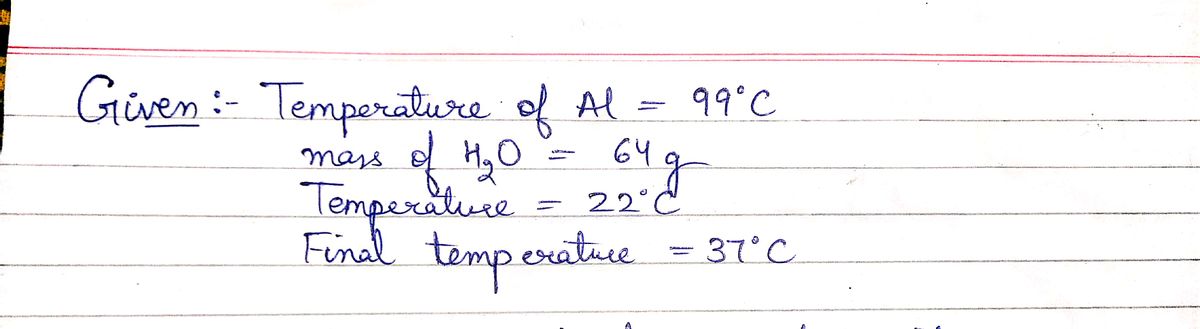 Given :- Temperature of Al = 99°C
mass of H₂O = 64 g
Temperature = 22°C
Final temperature = 37°C